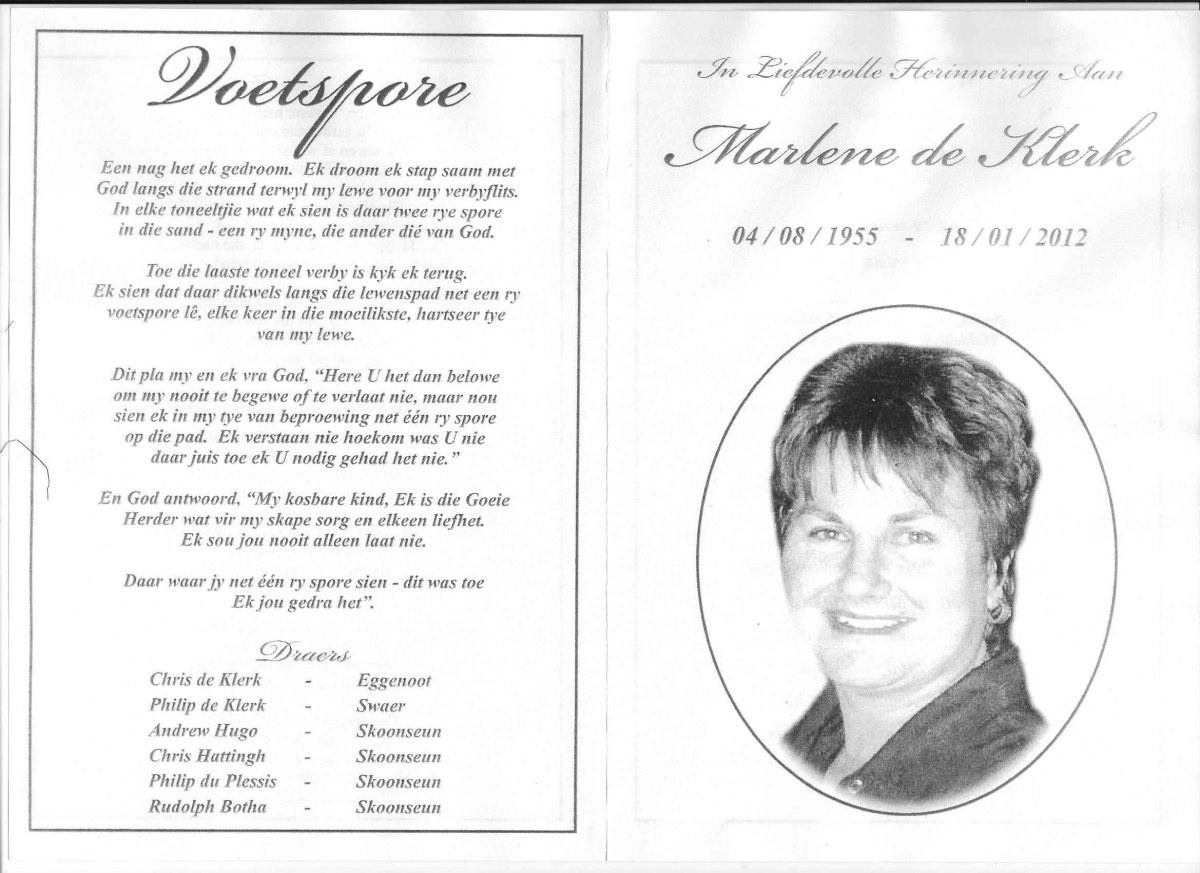 Voetspore
Een nag het ek gedroom. Ek droom ek stap saam met
God langs die strand terwyl my lewe voor my verbyflits.
In elke toneeltjie wat ek sien is daar twee rye spore
in die sand - een ry myne, die ander dié van God.
Toe die laaste toneel verby is kyk ek terug.
Ek sien dat daar dikwels langs die lewenspad net een ry
voetspore lê, elke keer in die moeilikste, hartseer tye
van my lewe.
Dit pla my en ek vra God, “Here U het dan belowe
om my nooit te begewe of te verlaat nie, maar nou
sien ek in my tye van beproewing net één ry spore
op die pad. Ek verstaan nie hoekom was U nie
daar juis toe ek U nodig gehad het nie.”
En God antwoord, “My kosbare kind, Ek is die Goeie
Herder wat vir my skape sorg en elkeen liefhet.
Ek sou jou nooit alleen laat nie.
Daar waar jy net één ry spore sien - dit was toe
Ek jou gedra het”.
Draers
Chris de Klerk - Eggenoot
Philip de Klerk - Swaer
Andrew Hugo - Skoonseun
Chris Hattingh - Skoonseun
Philip du Plessis - Skoonseun
Rudolph Botha - Skoonseun
In Liefdevolle Herinnering Aan
Marlene de Klerk
04 / 08 / 1955 - 18 / 01 / 2012